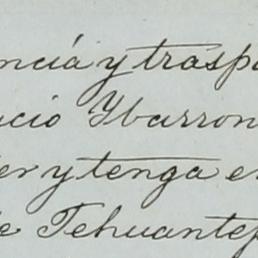 ncia y traspa
icio Ybarron
er y tenga e
e Tehuantep